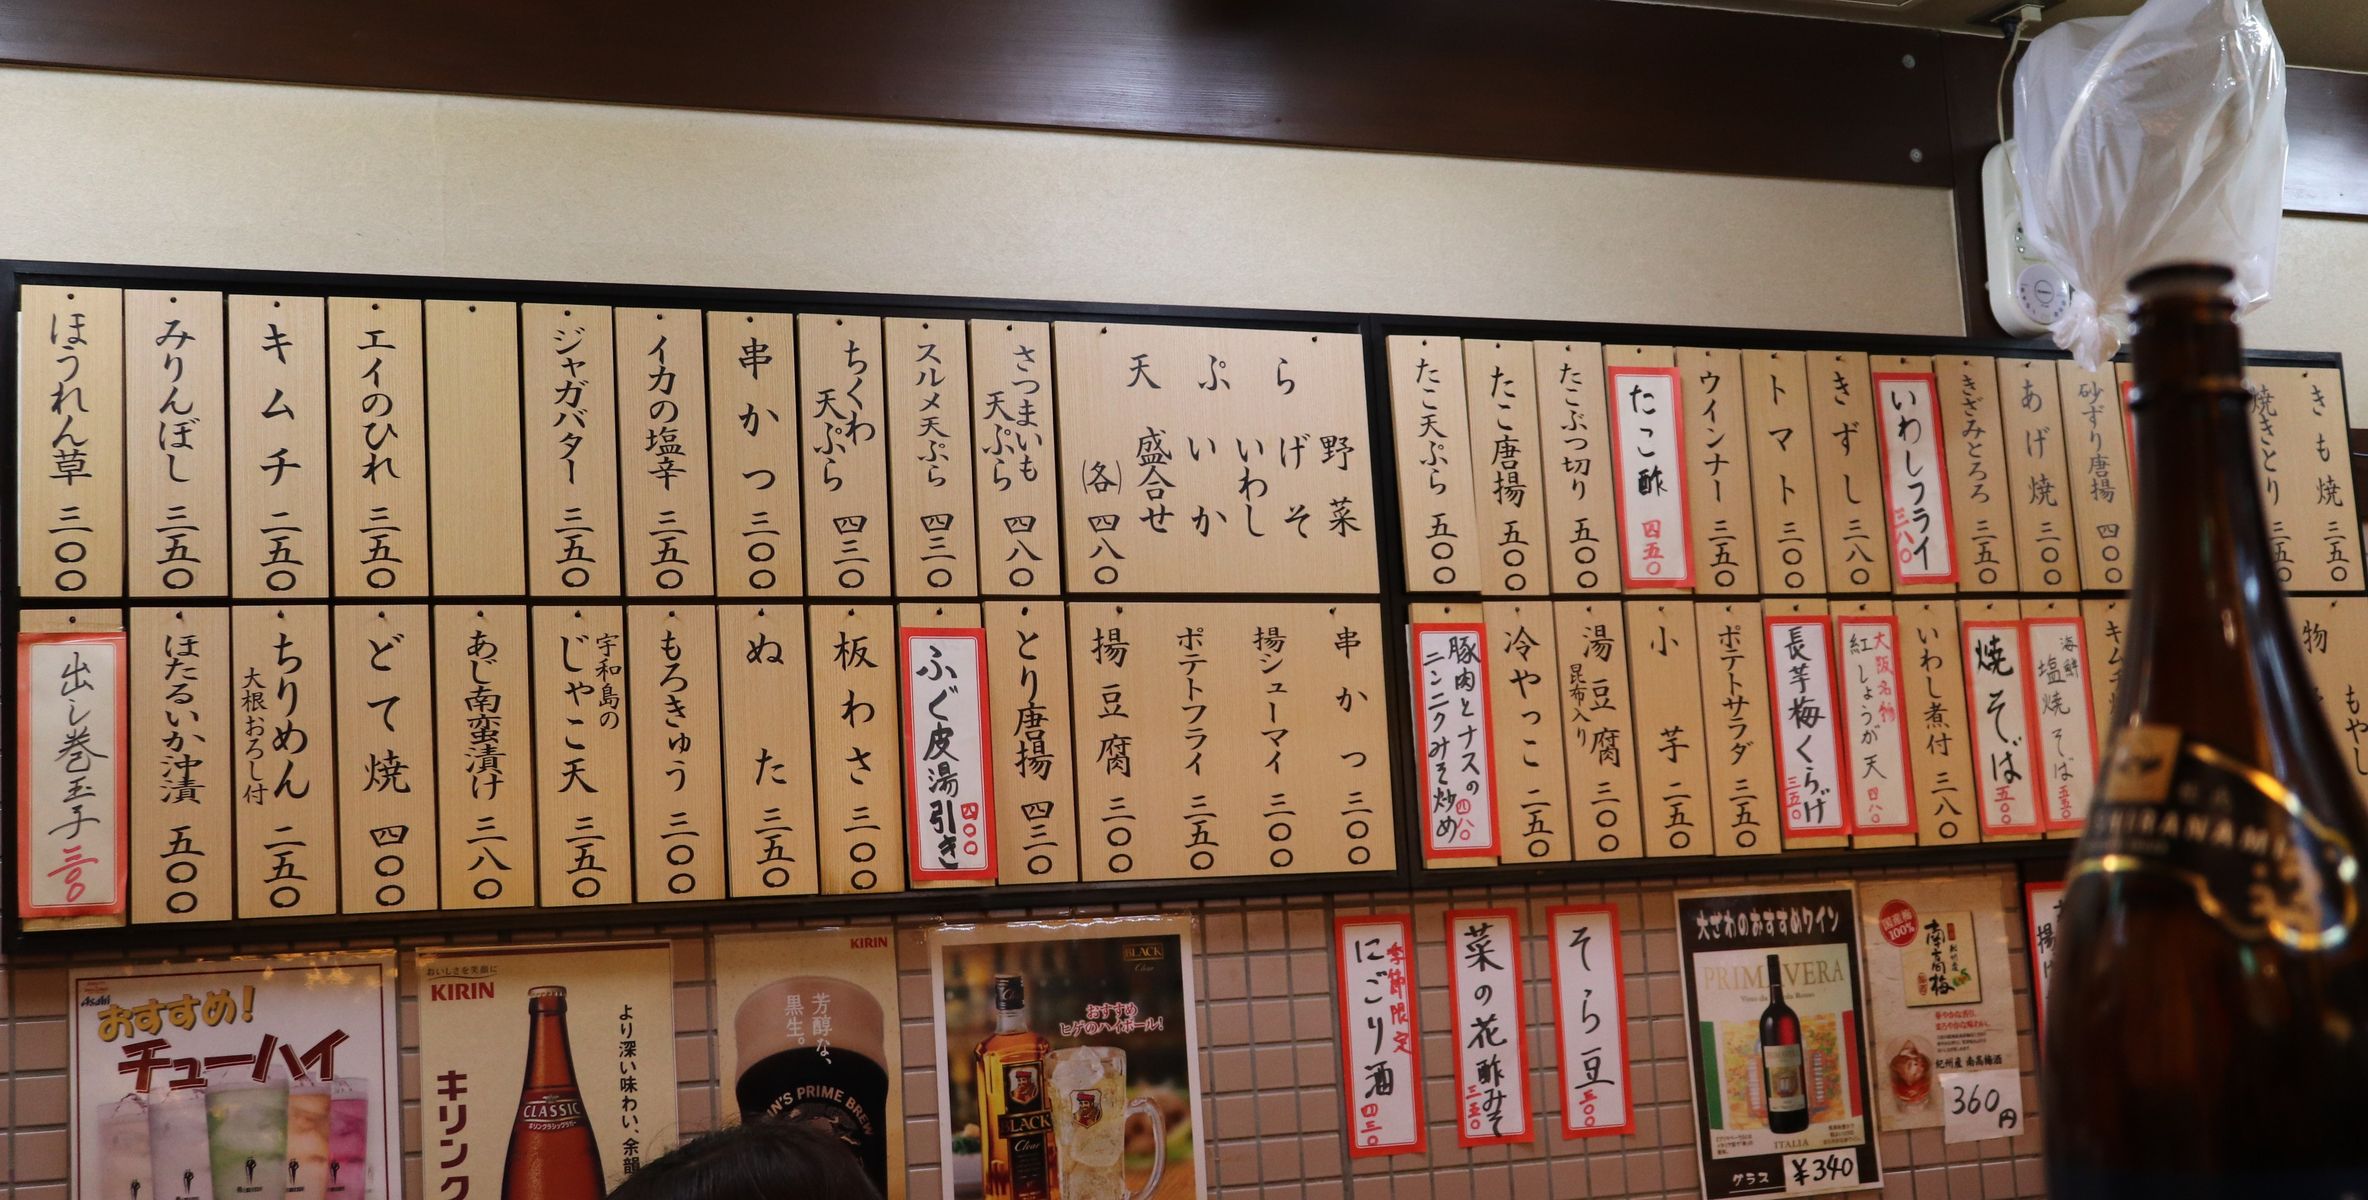 きも焼 三五〇
焼きとり 三五〇
砂ずり唐揚 四〇〇
あげ焼 三〇〇
きざみとろろ 三五〇
いわしフライ 三八〇
きずし 三八〇
トマト 三〇〇
ウインナー 三五〇
たこ酢 四五〇
たこぶつ切り 五〇〇
たこ唐揚 五〇〇
たこ天ぷら 五〇〇
天ぷら
野菜
げそ
いわし
いか
盛合せ
(各) 四八〇
さつまいも
天ぷら 四八〇
スルメ天ぷら 四三〇
ちくわ
天ぷら 四三〇
串かつ 三〇〇
イカの塩辛 三五〇
ジャガバター 三五〇
エイのひれ 三五〇
キムチ 二五〇
みりんぼし 三五〇
ほうれん草 三〇〇
もやし
海鮮
塩焼そば 五五〇
焼そば 五〇〇
いわし煮付 三八〇
大阪名物
紅しょうが天 四八〇
長芋梅くらげ 三五〇
ポテトサラダ 三五〇
小芋 二五〇
湯豆腐 三〇〇
昆布入り
冷やっこ 二五〇
豚肉とナスの
ニンニクみそ炒め 四八〇
串かつ 三〇〇
揚シューマイ 三〇〇
ポテトフライ 三五〇
揚豆腐 三〇〇
とり唐揚 四三〇
ふぐ皮湯引き 四〇〇
板わさ 三〇〇
ぬた 三五〇
もろきゅう 三〇〇
宇和島の
じゃこ天 三五〇
あじ南蛮漬け 三八〇
どて焼 四〇〇
ちりめん 二五〇
大根おろし付
ほたるいか沖漬 五〇〇
出し巻玉子 三〇〇
Asahi
おすすめ!
チューハイ
おいしさを笑顔に
KIRIN
より深い味わい、余韻
キリンク
CLASSIC
キリンクラシックラガー
KIRIN
芳醇な、
黒生。
PRIME BREW
BLACK
Clear
おすすめ
ヒゲのハイボール!
BLACK
Clear
季節限定
にごり酒 四三〇
菜の花酢みそ 三五〇
そら豆 三〇〇
大ざわのおすすめワイン
PRIMAVERA
ITALIA
グラス ¥340
国産梅
100%
南高梅
華やかな香り、
まろやかな味わい。
紀州産 南高梅酒
360円
SHIRANAMI